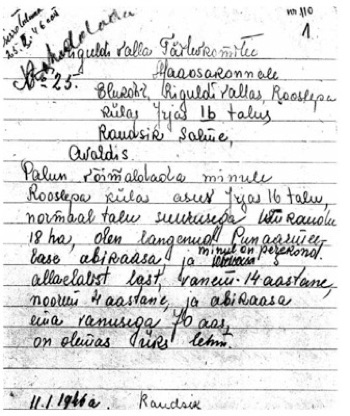 nr. 110
1
25.
Riguldi Valla Täitevkomitee
Maaosakonnale
Elukoht, Riguldi vallas, Rooslepa
külas Jrjas 16 talus
Randsik Salme,
Avaldis.
Palun võimaldada minule
Rooslepa küla asus Jrjas 16 talu,
normaal talu suurusega
18 ha, olen langenud Punaarmee-
lase abikaasa ja minul on perekond. 3
allaelalist last, vanem 14 aastane,
noorem 4 aastane, ja abikaasa
ema vanusega 70 aas,
on olemas üks lehm.
11.1.1946 a. Randsik